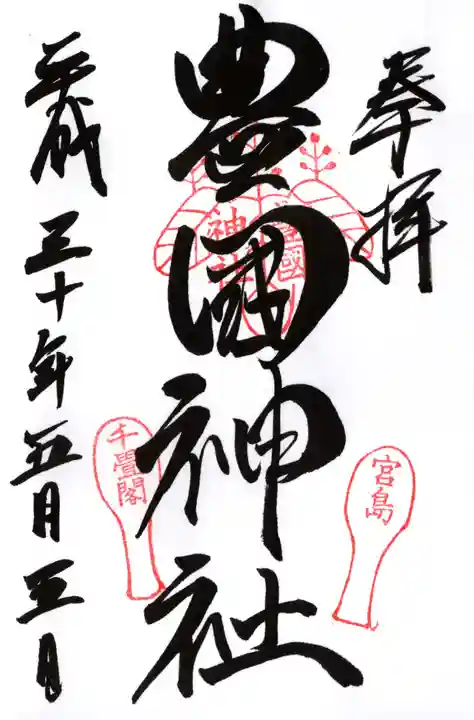 奉拝
豊國神社
豊國
神社
宮島
千畳閣
平成三十年五月五日